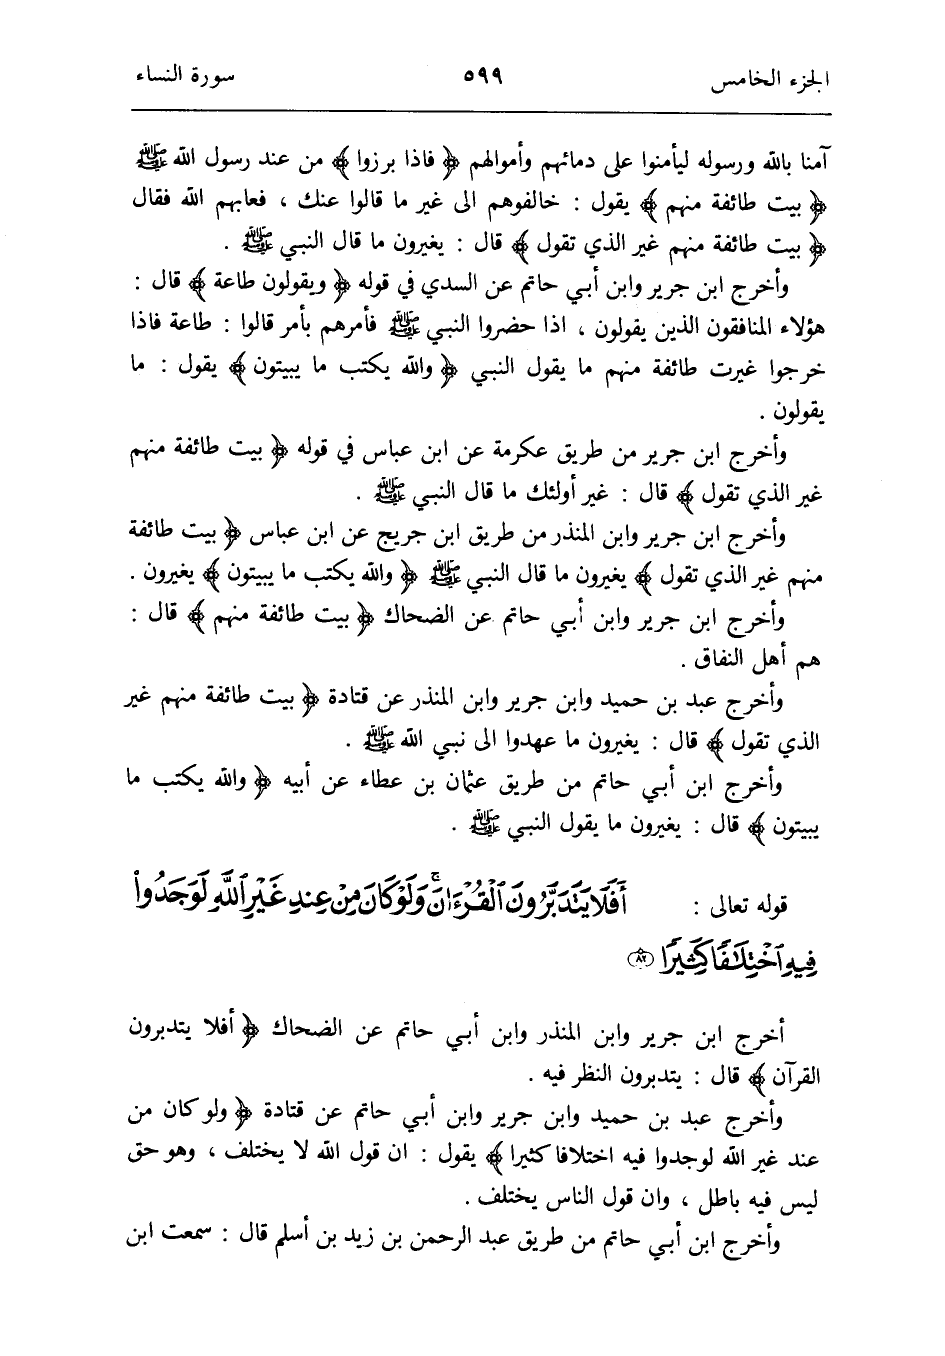 الجزء الخامس ٥٩٩ سورة النساء
آمنا بالله ورسوله ليأمنوا على دمائهم وأموالهم ﴿ فاذا برزوا ﴾ من عند رسول الله ﷺ
﴿ بيت طائفة منهم ﴾ يقول : خالفوهم الى غير ما قالوا عنك ، فعابهم الله فقال
﴿ بيت طائفة منهم غير الذي تقول ﴾ قال : يغيرون ما قال النبي ﷺ .
وأخرج ابن جرير وابن أبي حاتم عن السدي في قوله ﴿ ويقولون طاعة ﴾ قال :
هؤلاء المنافقون الذين يقولون ، اذا حضروا النبي ﷺ فأمرهم بأمر قالوا : طاعة فاذا
خرجوا غيرت طائفة منهم ما يقول النبي ﴿ والله يكتب ما يبيتون ﴾ يقول : ما
يقولون .
وأخرج ابن جرير من طريق عكرمة عن ابن عباس في قوله ﴿ بيت طائفة منهم
غير الذي تقول ﴾ قال : غير أولئك ما قال النبي ﷺ .
وأخرج ابن جرير وابن المنذر من طريق ابن جريج عن ابن عباس ﴿ بيت طائفة
منهم غير الذي تقول ﴾ يغيرون ما قال النبي ﷺ ﴿ والله يكتب ما يبيتون ﴾ يغيرون .
وأخرج ابن جرير وابن أبي حاتم عن الضحاك ﴿ بيت طائفة منهم ﴾ قال :
هم أهل النفاق .
وأخرج عبد بن حميد وابن جرير وابن المنذر عن قتادة ﴿ بيت طائفة منهم غير
الذي تقول ﴾ قال : يغيرون ما عهدوا الى نبي الله ﷺ .
وأخرج ابن أبي حاتم من طريق عثمان بن عطاء عن أبيه ﴿ والله يكتب ما
يبيتون ﴾ قال : يغيرون ما يقول النبي ﷺ .
قوله تعالى : أَفَلَا يَتَدَبَّرُونَ ٱلْقُرْءَانَ ۚ وَلَوْ كَانَ مِنْ عِندِ غَيْرِ ٱللَّهِ لَوَجَدُوا۟
فِيهِ ٱخْتِلَٰفًا كَثِيرًا ﴿٨٢﴾
أخرج ابن جرير وابن المنذر وابن أبي حاتم عن الضحاك ﴿ أفلا يتدبرون
القرآن ﴾ قال : يتدبرون النظر فيه .
وأخرج عبد بن حميد وابن جرير وابن أبي حاتم عن قتادة ﴿ ولو كان من
عند غير الله لوجدوا فيه اختلافا كثيرا ﴾ يقول : ان قول الله لا يختلف ، وهو حق
ليس فيه باطل ، وان قول الناس يختلف .
وأخرج ابن أبي حاتم من طريق عبد الرحمن بن زيد بن أسلم قال : سمعت ابن